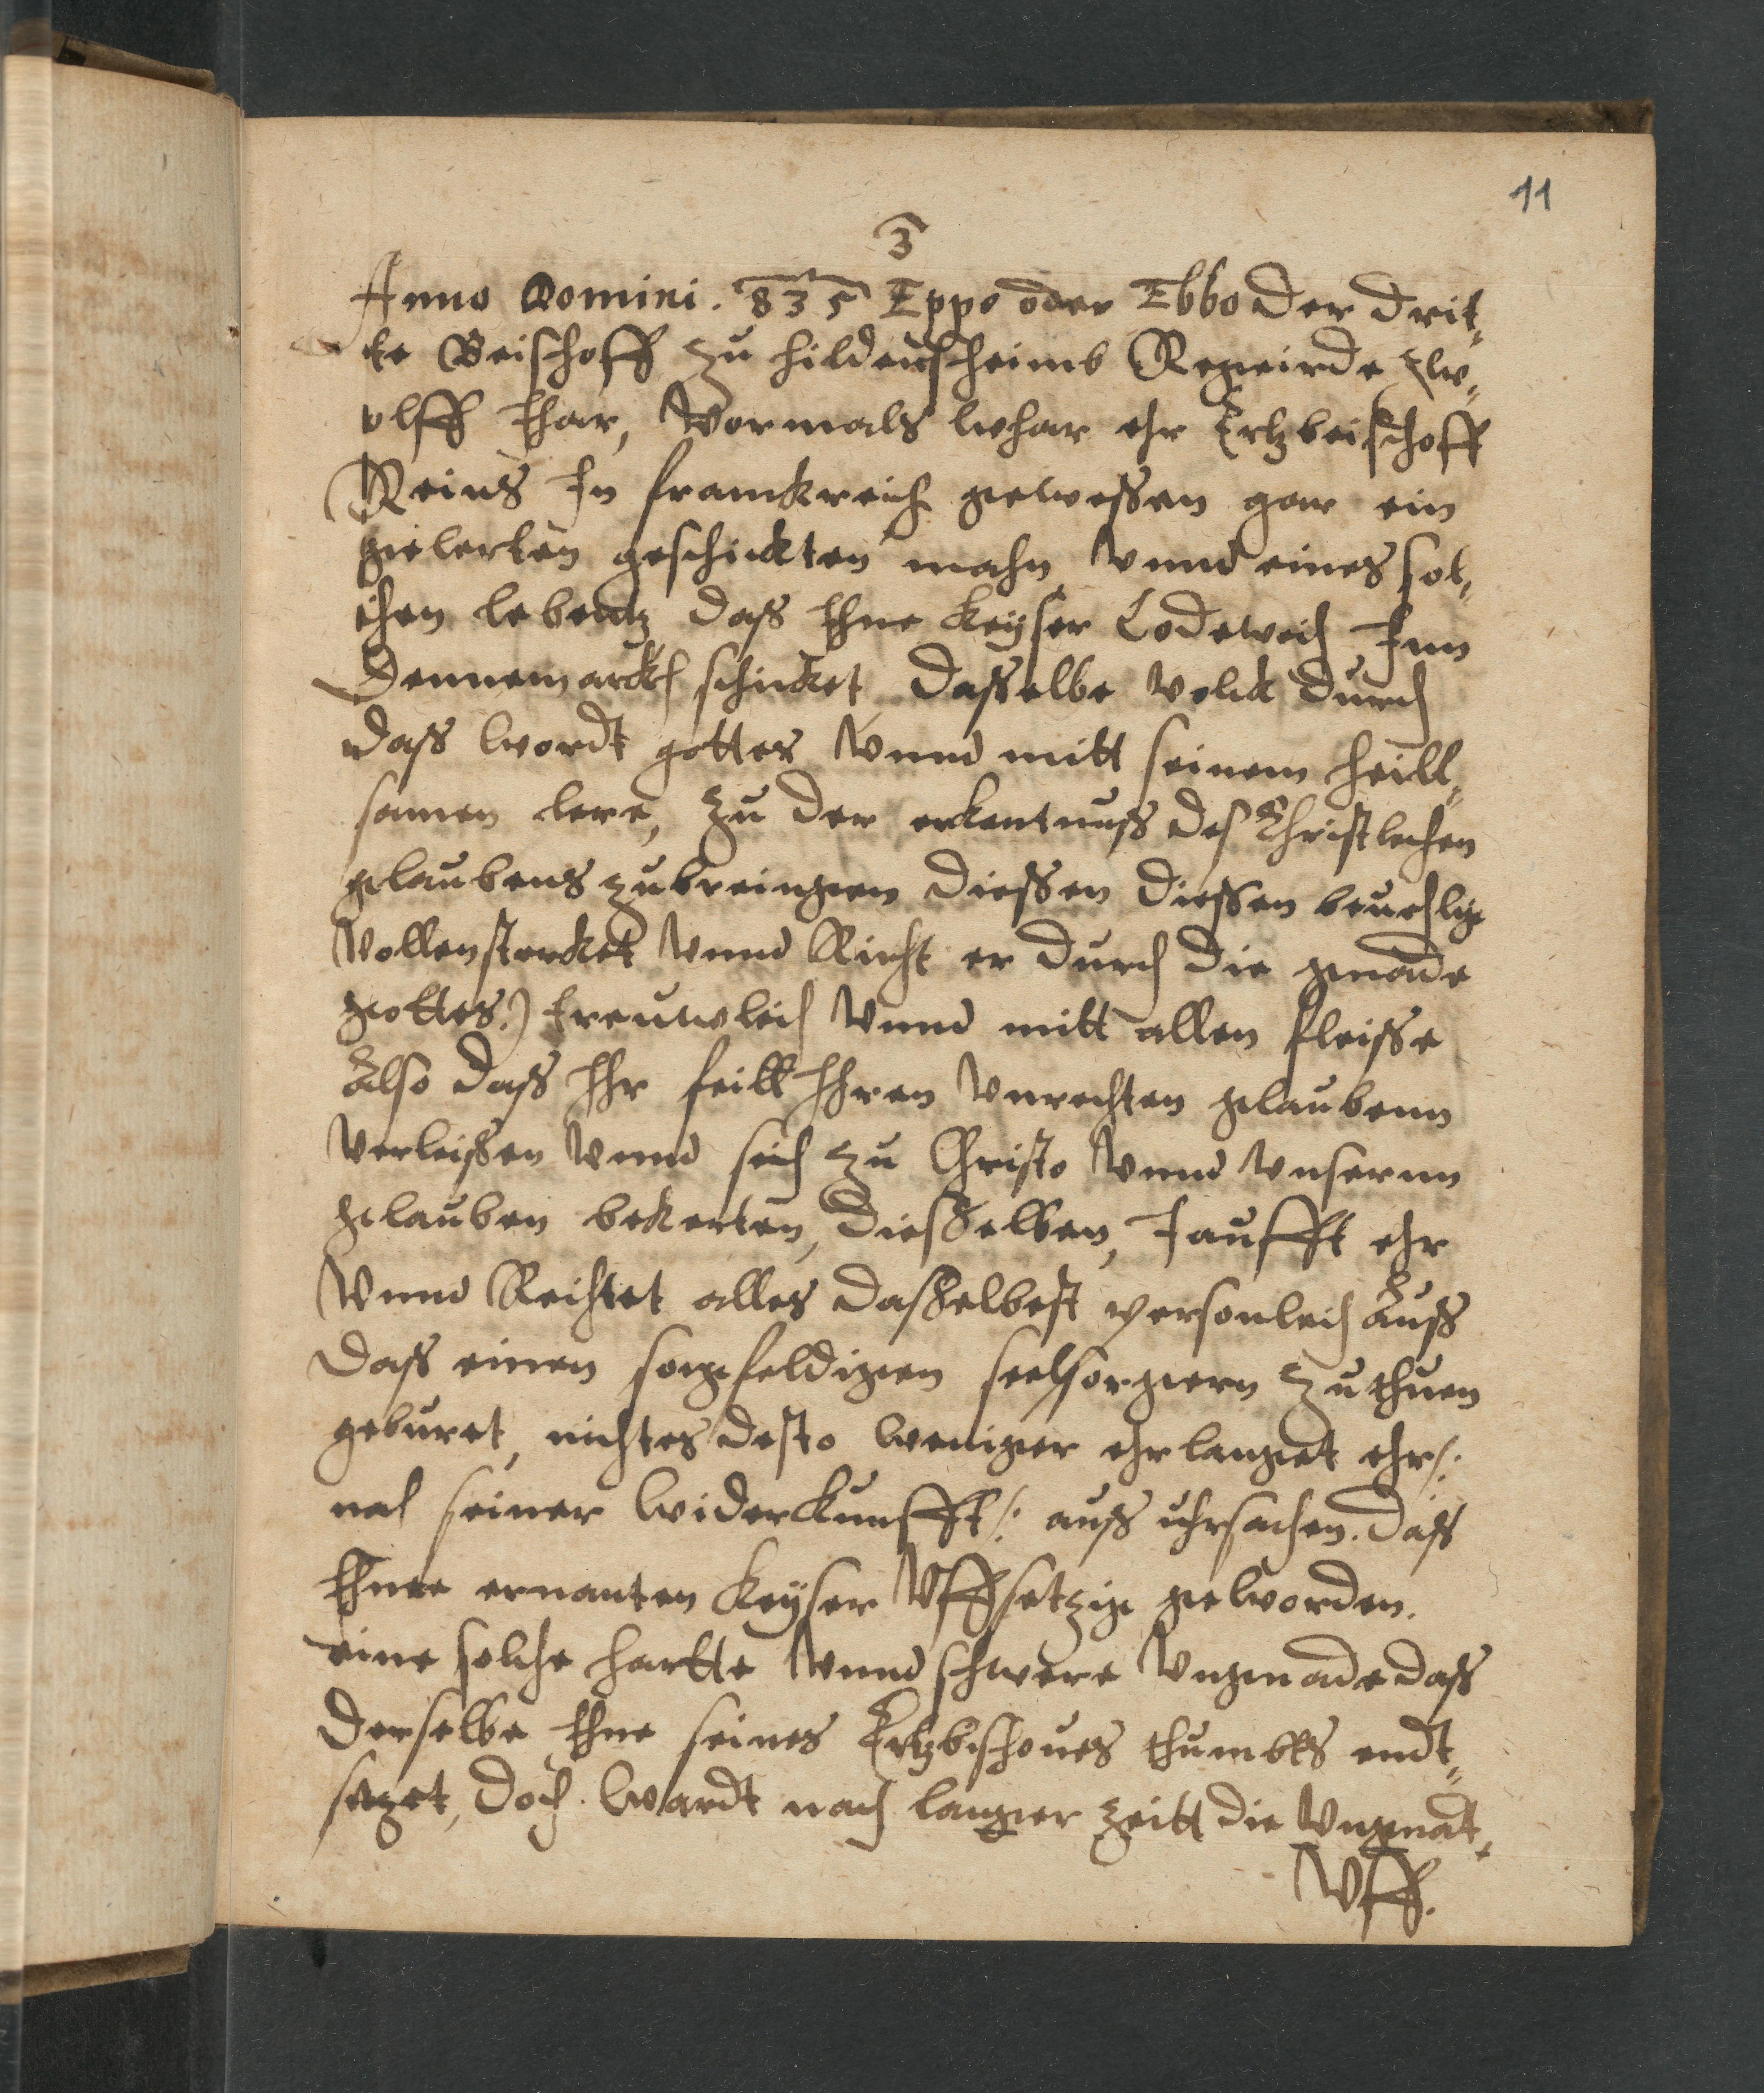 11
3
Anno Domini. 835 Eppo oder Ebbo der drit„
te Beischoff zu hildensheimb Regeirde zw„
olff Jhar, Vormals whar ehr Ertzbeischoff
Reins In franckreich gewessen gar ein
gelerten geschickten mahn Vnnd eines sol„
chen lebentz daß Ihne Keyser Lodeweich Inn
Dennemarckh schicket dasselbe Volck durch
daß wordt gottes Vnnd mitt seinem heill„
samen lere, zu der erkentnuß des Christlechen
glaubens zubreingen diessen diessen beuehlig
Vollenstrecket Vnnd Richt er durch die gnade
gottes) treuwleich Vnnd mitt allen fleisse
Also daß Ihr feill Ihren Vnrechten glaubenn
Verleissen Vnnd sich zu Christo Vnnd Vnsernn
glauben bekerten, diesselben, taufft ehr
Vnnd Reichtet alles dasselbest personleich auß
daß einen sorgfeldigen seelsorgern zu thuen
geburet, nichtes desto weniger ehrlanget ehr /:
nach seiner widerkunfft /: auß uhrsachen. daß
Ihme ernanten Keyser Vffsetzig geworden.
eine solche hartte Vnnd schwere Vngnade daß
derselbe Ihne seines Ertzbischoues thumbts endt„
sazet, doch wardt nach langer zeitt die Vngnad„
Vff.